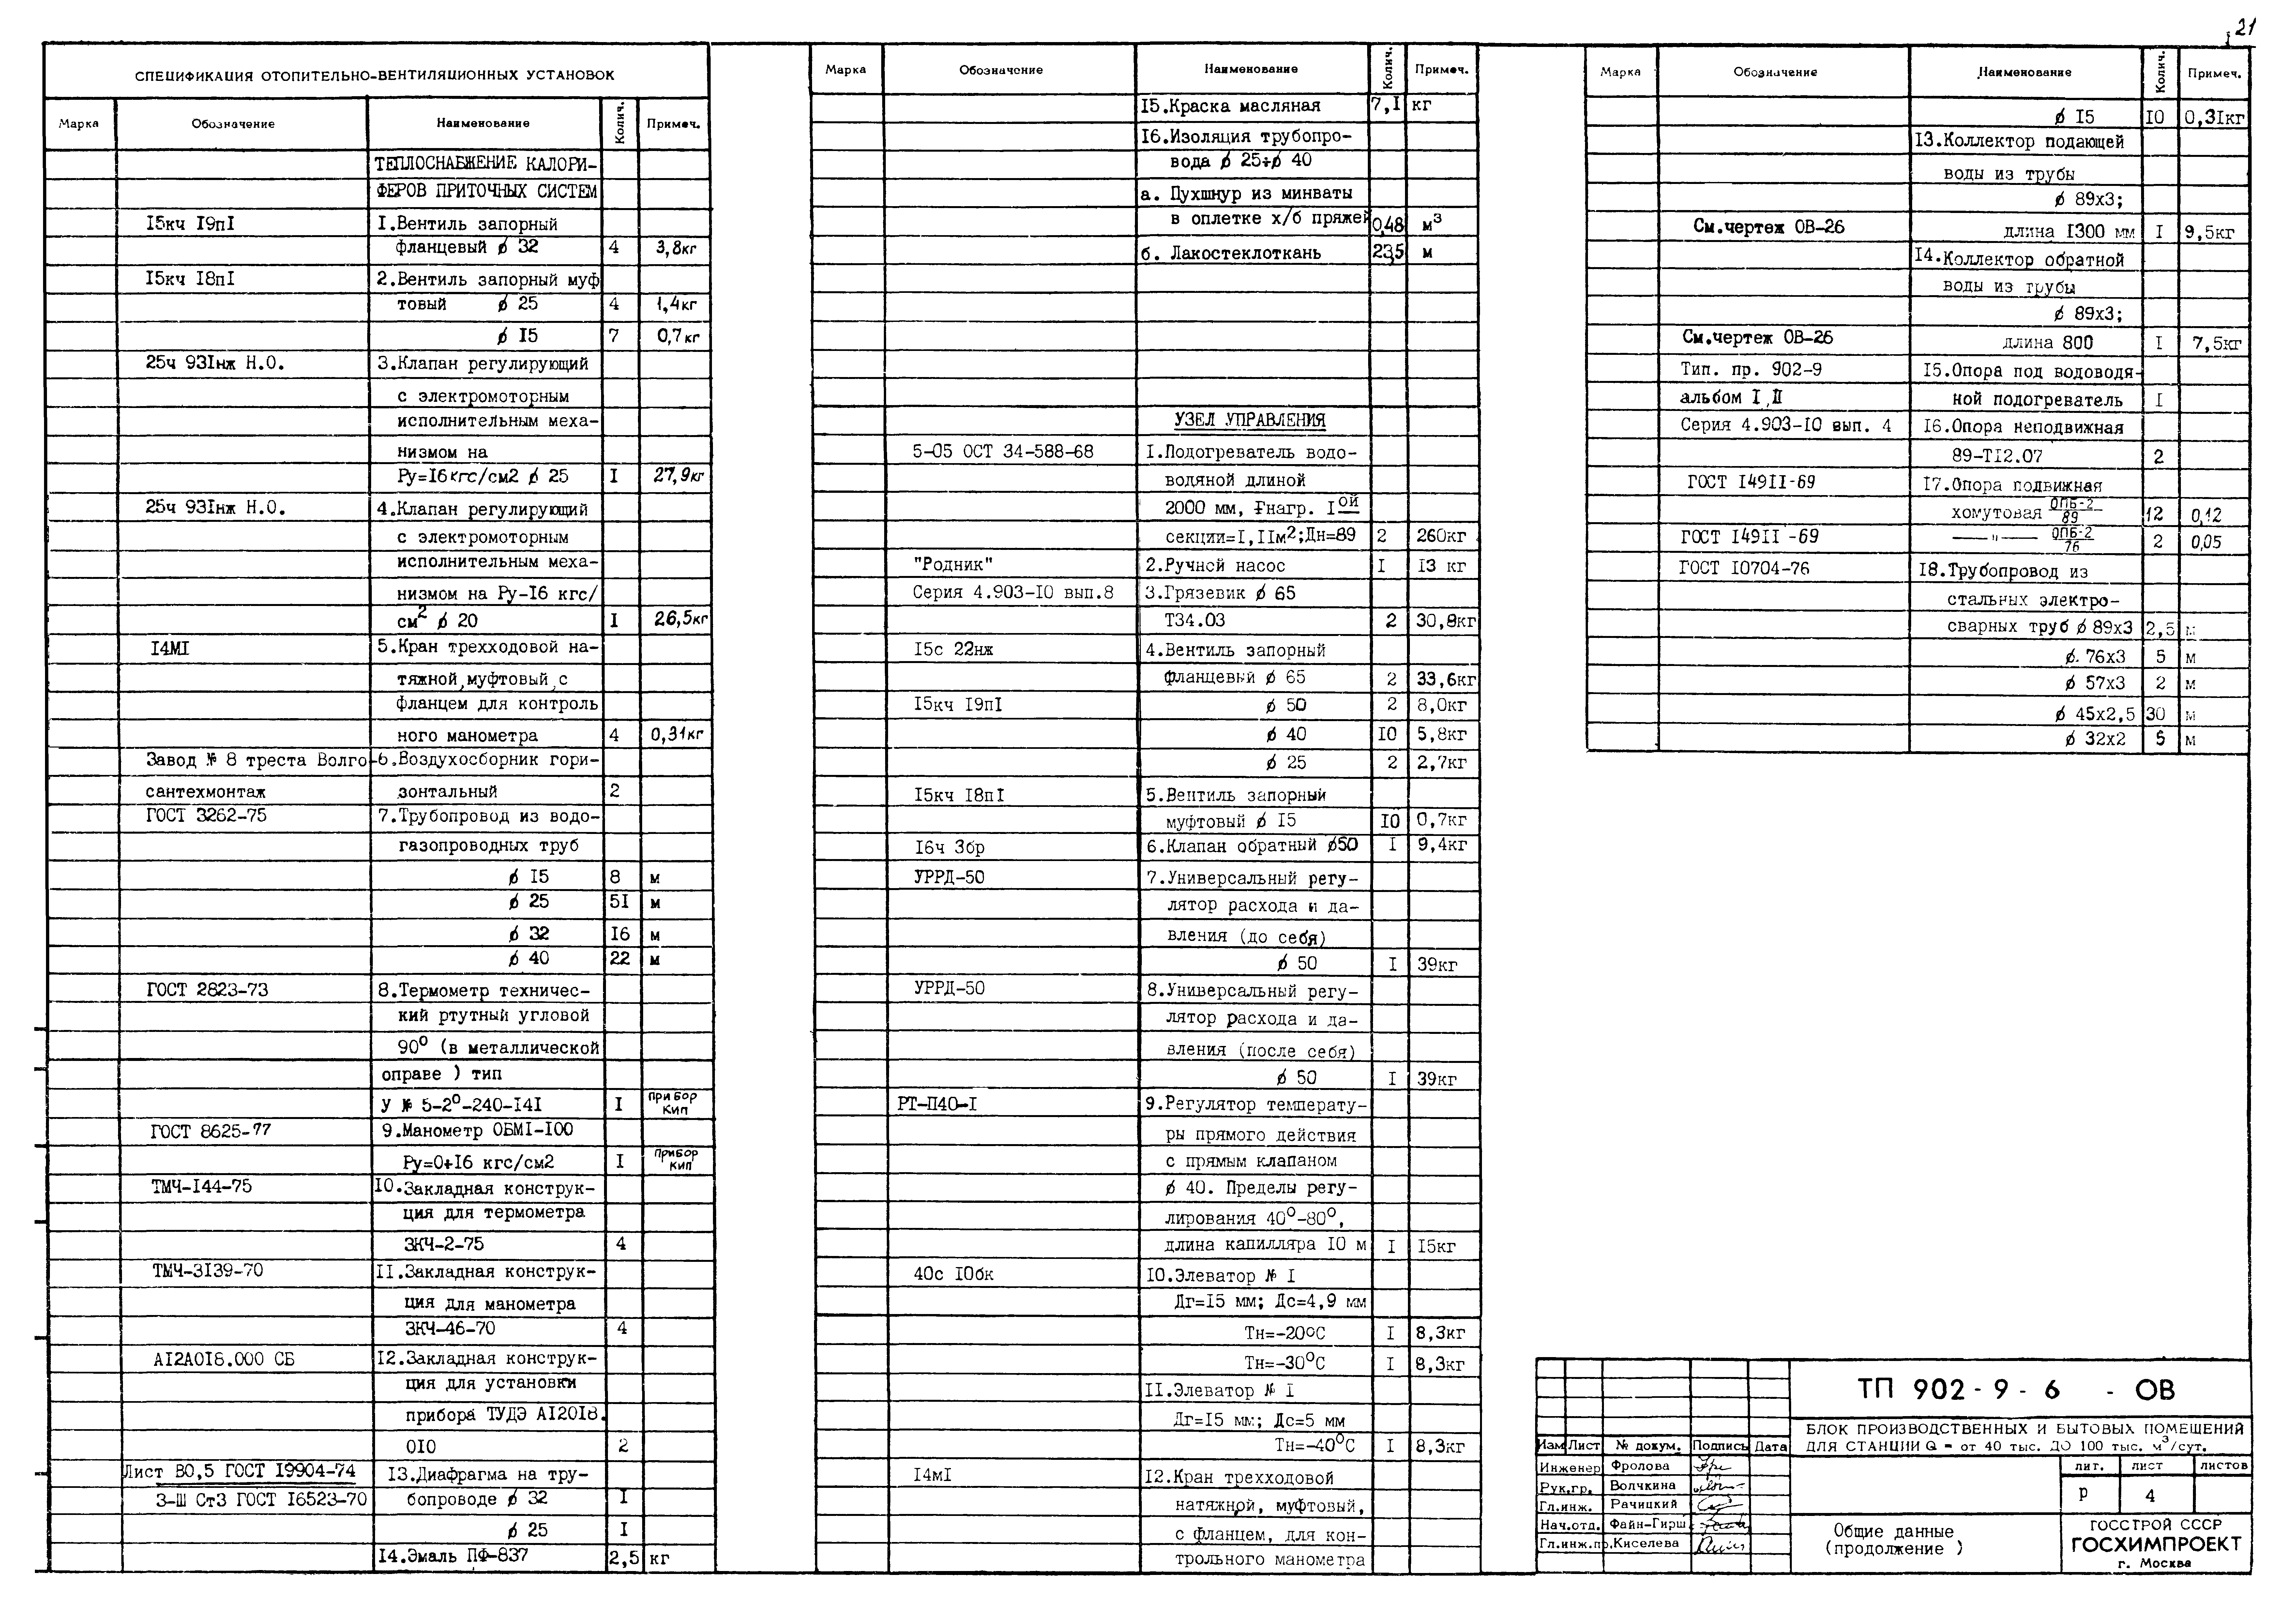 21
СПЕЦИФИКАЦИЯ ОТОПИТЕЛЬНО-ВЕНТИЛЯЦИОННЫХ УСТАНОВОК
Марка Обозначение Наименование Колич. Примеч.
ТЕПЛОСНАБЖЕНИЕ КАЛОРИ-
ФЕРОВ ПРИТОЧНЫХ СИСТЕМ
15кч 19п1 1.Вентиль запорный
фланцевый ϕ 32 4 3,8кг
15кч 18п1 2.Вентиль запорный муф
товый ϕ 25 4 1,4кг
ϕ 15 7 0,7кг
25ч 931нж Н.О. 3.Клапан регулирующий
с электромоторным
исполнительным меха-
низмом на
Ру=16кгс/см2 ϕ 25 1 27,9кг
25ч 931нж Н.О. 4.Клапан регулирующий
с электромоторным
исполнительным меха-
низмом на Ру-16 кгс/
см2 ϕ 20 1 26,5кг
14М1 5.Кран трехходовой на-
тяжной,муфтовый,с
фланцем для контроль
ного манометра 4 0,31кг
Завод № 8 треста Волго- 6.Воздухосборник гори-
сантехмонтаж зонтальный 2
ГОСТ 3262-75 7.Трубопровод из водо-
газопроводных труб
ϕ 15 8 м
ϕ 25 51 м
ϕ 32 16 м
ϕ 40 22 м
ГОСТ 2823-73 8.Термометр техничес-
кий ртутный угловой
90° (в металлической
оправе ) тип
У № 5-2°-240-141 1 прибор КИП
ГОСТ 8625-77 9.Манометр ОБМ1-100
Ру=0÷16 кгс/см2 1 прибор КИП
ТМЧ-144-75 10.Закладная конструк-
ция для термометра
ЗКЧ-2-75 4
ТМЧ-3139-70 11.Закладная конструк-
ция для манометра
ЗКЧ-46-70 4
А12А018.000 СБ 12.Закладная конструк-
ция для установки
прибора ТУДЭ А12018.
010 2
Лист В0,5 ГОСТ 19904-74 13.Диафрагма на тру-
3-Ш Ст3 ГОСТ 16523-70 бопроводе ϕ 32 1
ϕ 25 1
14.Эмаль ПФ-837 2,5 кг
Марка Обозначение Наименование Колич. Примеч.
15.Краска масляная 7,1 кг
16.Изоляция трубопро-
вода ϕ 25÷ϕ 40
а. Пухшнур из минваты
в оплетке х/б пряжей 0,48 м3
б. Лакостеклоткань 23,5 м
УЗЕЛ УПРАВЛЕНИЯ
5-05 ОСТ 34-588-68 1.Подогреватель водо-
водяной длиной
2000 мм, Fнагр. 1ой
секции=1,11м2;Дн=89 2 260кг
"Родник" 2.Ручной насос 1 13 кг
Серия 4.903-10 вып.8 3.Грязевик ϕ 65
Т34.03 2 30,8кг
15с 22нж 4.Вентиль запорный
фланцевый ϕ 65 2 33,6кг
15кч 19п1 ϕ 50 2 8,0кг
ϕ 40 10 5,8кг
ϕ 25 2 2,7кг
15кч 18п1 5.Вентиль запорный
муфтовый ϕ 15 10 0,7кг
16ч 3бр 6.Клапан обратный ϕ50 1 9,4кг
УРРД-50 7.Универсальный регу-
лятор расхода и да-
вления (до себя)
ϕ 50 1 39кг
УРРД-50 8.Универсальный регу-
лятор расхода и да-
вления (после себя)
ϕ 50 1 39кг
РТ-П40-1 9.Регулятор температу-
ры прямого действия
с прямым клапаном
ϕ 40. Пределы регу-
лирования 40°-80°,
длина капилляра 10 м 1 15кг
40с 10бк 10.Элеватор № 1
Дг=15 мм; Дс=4,9 мм
Тн=-20°С 1 8,3кг
Тн=-30°С 1 8,3кг
11.Элеватор № 1
Дг=15 мм; Дс=5 мм
Тн=-40°С 1 8,3кг
14м1 12.Кран трехходовой
натяжной, муфтовый,
с фланцем, для кон-
трольного манометра
Марка Обозначение Наименование Колич. Примеч.
ϕ 15 10 0,31кг
13.Коллектор подающей
воды из трубы
ϕ 89х3;
См.чертеж ОВ-26 длина 1300 мм 1 9,5кг
14.Коллектор обратной
воды из трубы
ϕ 89х3;
См.чертеж ОВ-26 длина 800 1 7,5кг
Тип. пр. 902-9 15.Опора под водоводя-
альбом I,II ной подогреватель 1
Серия 4.903-10 вып. 4 16.Опора неподвижная
89-Т12.07 2
ГОСТ 14911-69 17.Опора подвижная
хомутовая ОПБ-2/89 12 0,12
ГОСТ 14911 -69 —— " —— ОПБ-2/76 2 0,05
ГОСТ 10704-76 18.Трубопровод из
стальных электро-
сварных труб ϕ 89х3 2,5 м
ϕ 76х3 5 м
ϕ 57х3 2 м
ϕ 45х2,5 30 м
ϕ 32х2 5 м
ТП 902-9-6 - ОВ
БЛОК ПРОИЗВОДСТВЕННЫХ И БЫТОВЫХ ПОМЕЩЕНИЙ
ДЛЯ СТАНЦИИ Q = от 40 тыс. ДО 100 тыс. м3/сут.
Изм Лист № докум. Подпись Дата
Инженер Фролова
Рук.гр. Волчкина
Гл.инж. Рачицкий
Нач.отд. Файн-Гирш
Гл.инж.пр. Киселева
лит. лист листов
Р 4
Общие данные
(продолжение )
ГОССТРОЙ СССР
ГОСХИМПРОЕКТ
г. Москва